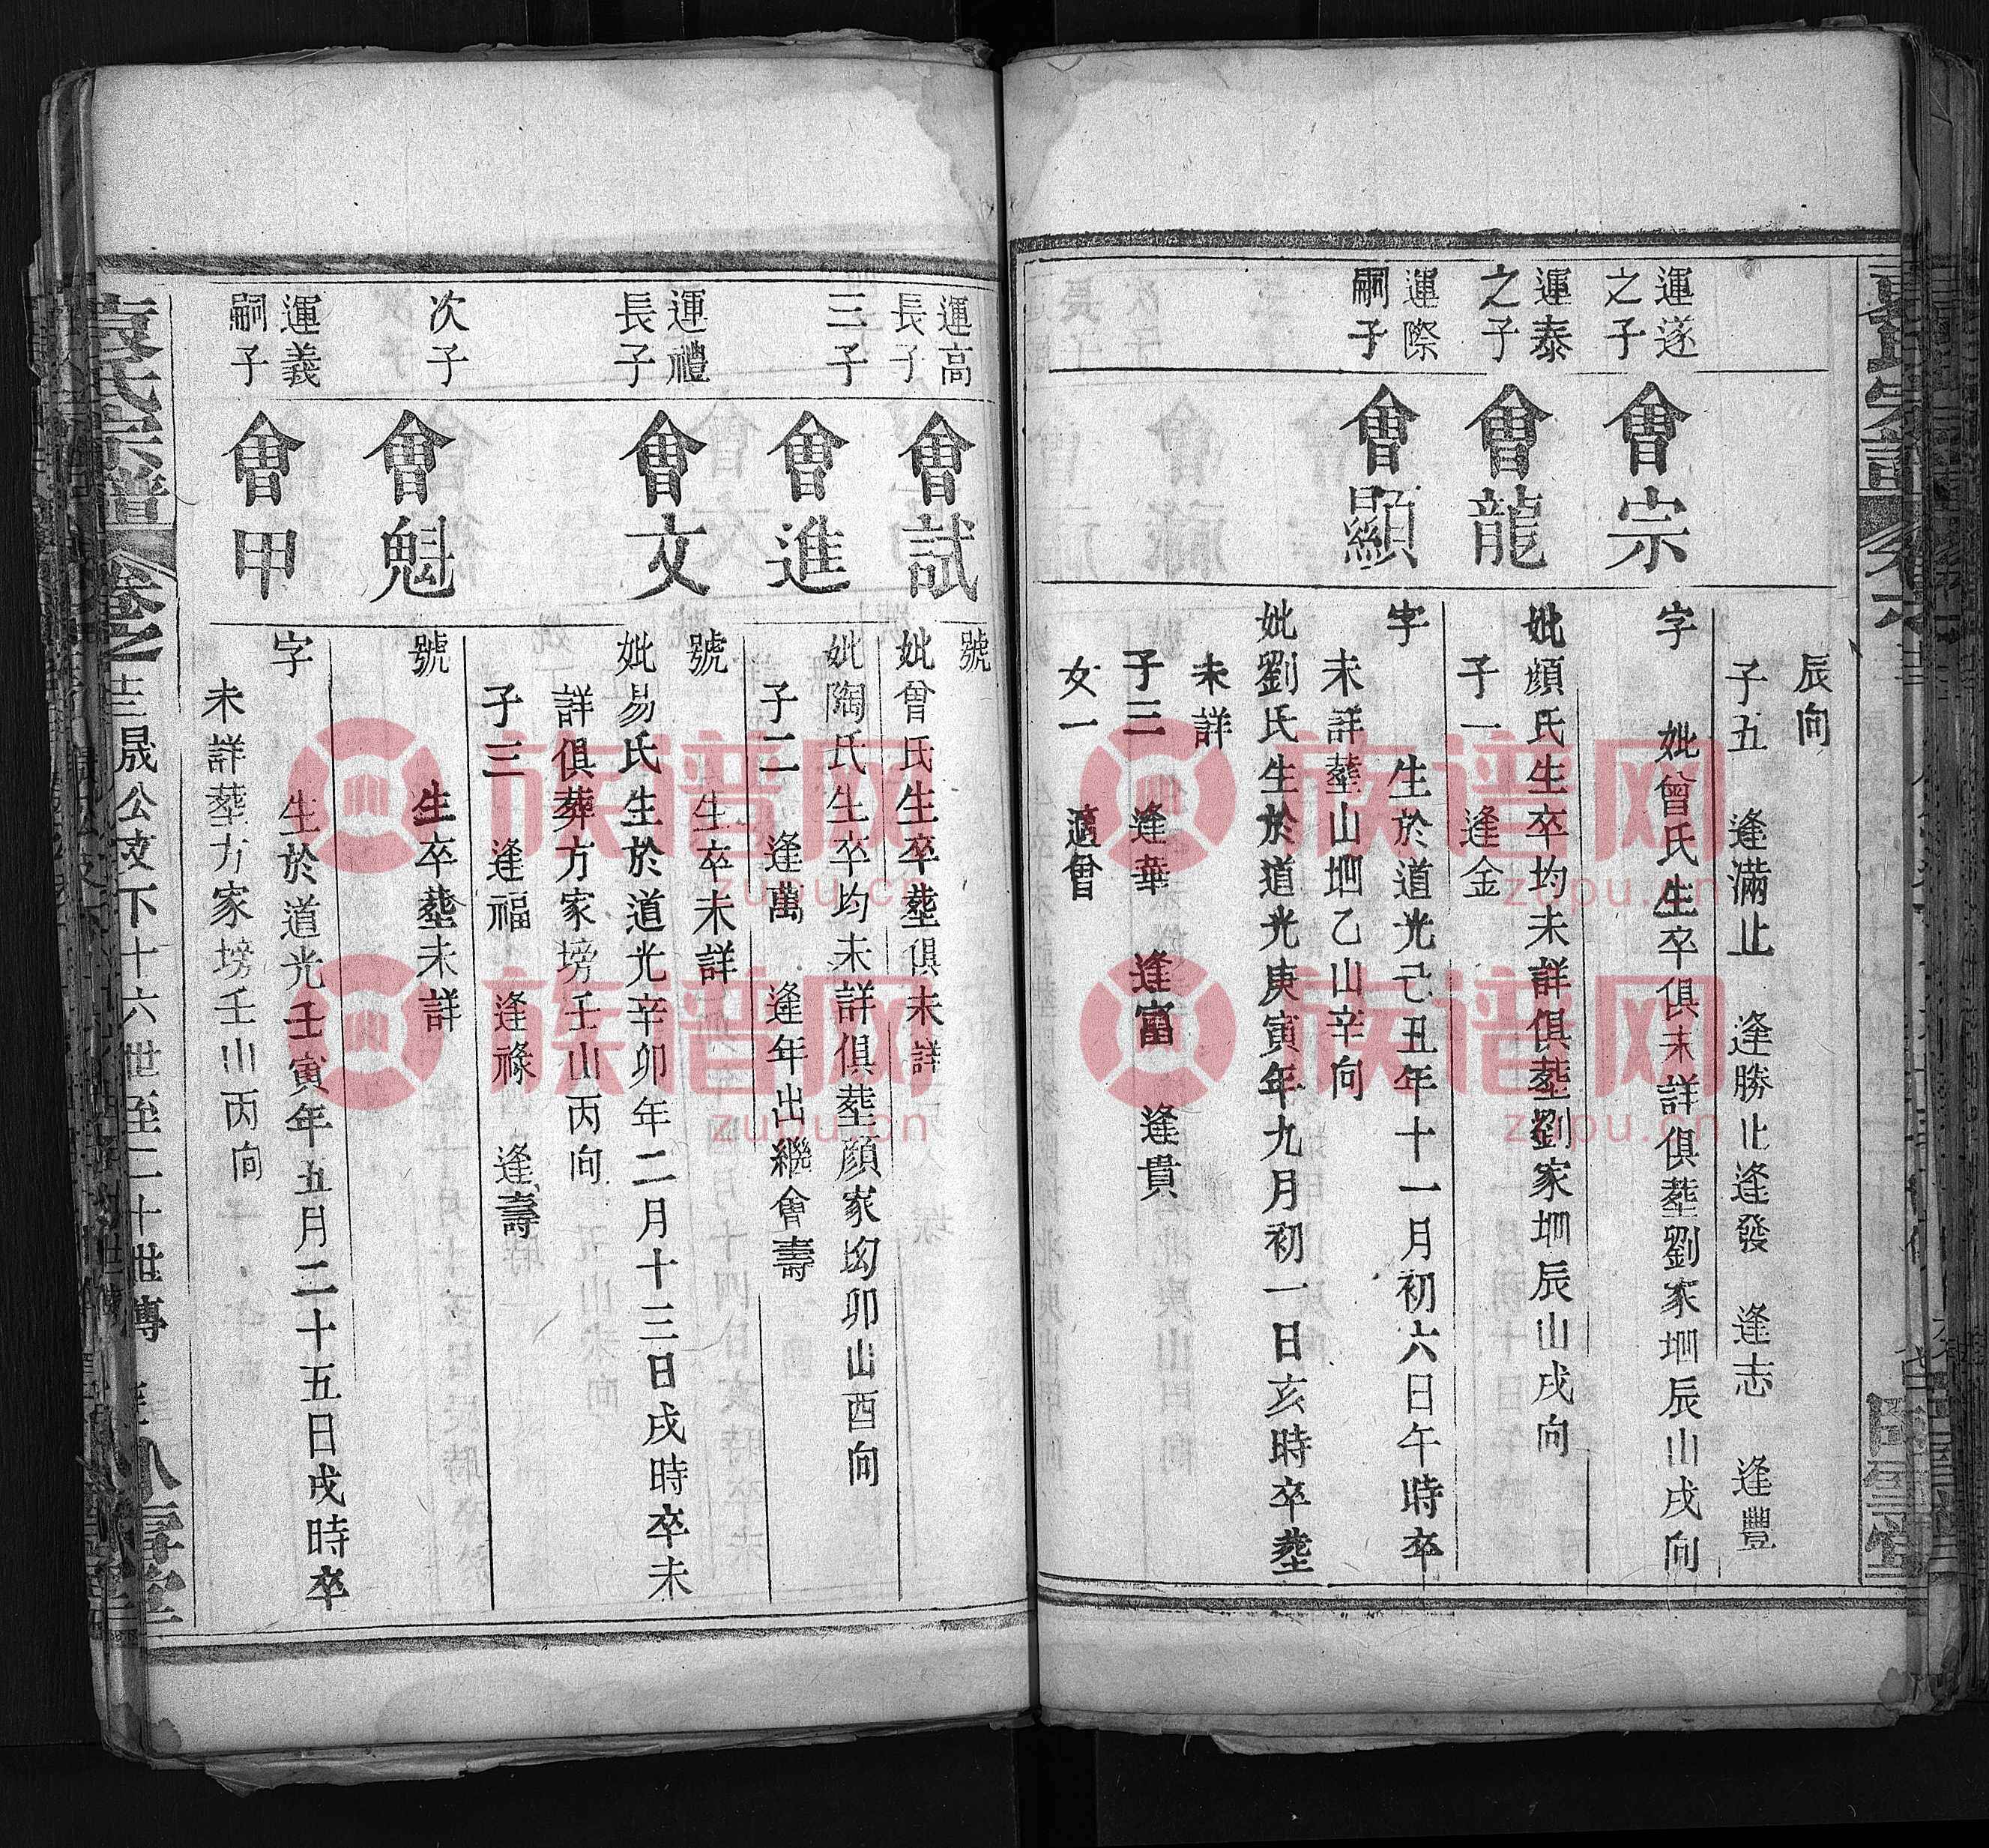 辰向
子五 逢滿止 逢勝止 逢發 逢志 逢豐
運遂
之子
會宗
字 妣曾氏生卒俱未詳俱塟劉家坤辰山戌向
運泰
之子
會龍
妣顏氏生卒均未詳俱塟劉家坤辰山戌向
子一 逢金
運際
嗣子
會顯
字 生於道光己丑年十一月初六日午時卒
未詳塟山坤乙山辛向
妣劉氏生於道光庚寅年九月初一日亥時卒塟
未詳
子三 逢華 逢富 逢貴
女一 適曾
運高
長子
會試
號
妣曾氏生卒塟俱未詳
三子
會進
妣陶氏生卒均未詳俱塟顏家㘭卯山酉向
子二 逢萬 逢年出繼會壽
運禮
長子
會文
號 生卒未詳
妣易氏生於道光辛卯年二月十三日戌時卒未
詳俱葬方家塝壬山丙向
子三 逢福 逢祿 逢壽
次子
會魁
號 生卒塟未詳
運義
嗣子
會甲
字 生於道光壬寅年五月二十五日戌時卒
未詳葬方家塝壬山丙向
袁氏宗譜 卷之 晟公支下十六世至二十世傳
族谱网
zupu.cn
族谱网
zupu.cn
族谱网
zupu.cn
族谱网
zupu.cn